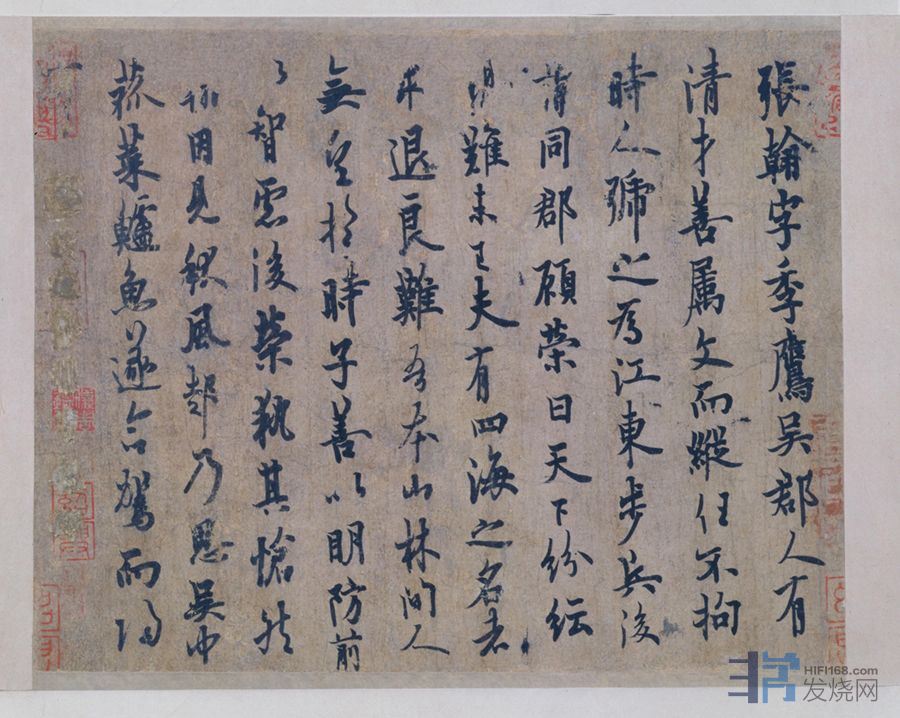 張翰字季鷹吳郡人有
清才善属文而縱任不拘
時人號之為江東步兵後
謂同郡顧榮曰天下紛紜
難未已夫有四海之名者
求退良難吾本山林間人
無望於時子善以明防前
以智慮後榮執其愴然
翰因見秋風起乃思吳中
菰菜鱸魚遂命駕而歸
HIFI168.com
发烧网